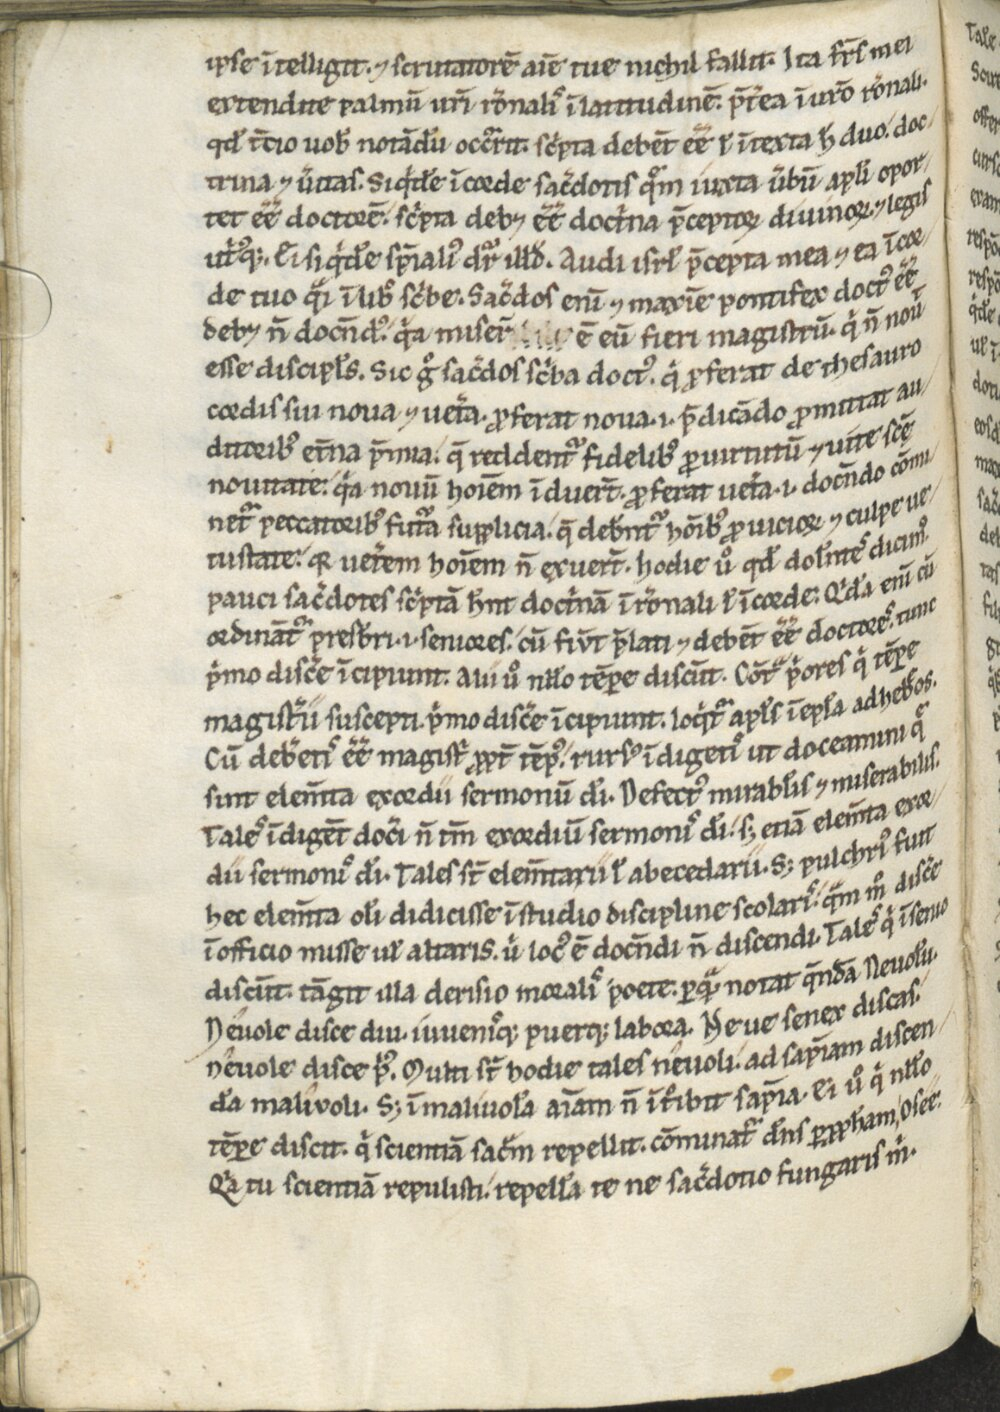 ipse ītelligit. ⁊ scrutatorē aīe tue nichil fallit. Ita fr̄s mei
extendite palmū ur̄i rōnalis ī latitudinē. p̄terea ī ur̄o rōnali.
qd̄ t̄cio uob̄ notādū occ̄rit. sc̄pta debēt eē ł ītexta h̄ duo. doc
trina ⁊ ūitas. Siq̄de ī corde sac̄dotis q̄m iuxta ūbū apl̄i opor
tet eē doctorē. sc̄pta debꝫ eē doct̄na p̄ceptoꝝ diuinoꝝ. ⁊ legis
ut̄usqꝫ. Ei siq̄de sp̄ialis dr̄ illđ. Audi isrl̄ p̄cepta mea ⁊ ea ī cor
de tuo q̄i ī lib̄ sc̄be. Sac̄dos enī ⁊ maxīe pontifex doct᷒ eē
debꝫ n̄ docn̄d᷒. q̄a miser̄ ē eū fieri magistrū. q̄ n̄ nouit
esse discipl̄s. Sic g̊ sac̄dos sc̄ba doct᷒. q̄ ꝓferat de thesauro
cordis sui noua ⁊ uet̄a. ꝓferat noua .i. p̄dicādo ꝓmittat au
ditorib᷒ et̄na p̄mia. q̄ reddent᷑ fidelib᷒ ꝓ uirtutū ⁊ uite sc̄e
nouitate. q̄a nouū hoīem īduert̄. ꝓferat uet̄a .i. docn̄do cōmi
net᷑ peccatorib᷒ fut̄a supplicia. q̄ debn̄t᷑ hōib᷒ ꝓ uicioꝝ ⁊ culpe ue
tustate. qr̄ uet̄em hoīem n̄ exuert̄. hodie ů qd̄ doln̄tes dicim᷒.
pauci sac̄dotes sc̄ptā hn̄t doct̄nā ī rōnali ł ī corde. Q̄da enī cū
ordināt᷑ presbr̄i .i. seniores. cū fiūt p̄lati ⁊ debēt eē doctores. tunc
p̄mo disc̄e īcipiunt. Alii ů nllo tēpe discūt. Cōt᷑ p̄ores q̄ tēpe
magist̄ii suscepti. p̄mo disc̄e īcipiunt. loq̄t᷑ apls̄ ī epl̄a ad heb̄os.
Cū deb̄etis eē magist̄ ꝓpt̄ tēp᷒. rurs᷒ īdigetis ut doceamini q̄
sunt elem̄ta exordii sermonū dī. Defect᷒ mirabl̄is ⁊ miserabilis.
Tales īdigēt doc̄i n̄ tm̄ exordiū sermonis dī. sꝫ etiā elem̄ta exor
dii sermonis dī. Tales st̄ elem̄tarii ł abecedarii. Sꝫ pulchri᷒ fuit
hec elem̄ta olī didicisse ī studio discipline scolaris. q̄m m̊ disc̄e
ī officio misse ul̄ altaris. ů loc᷒ ē docn̄di n̄ discendi. Tales q̄ ī senio
discūt. tāgit illa derisio moralis poete. ꝑ q̄ notat q̄ndā Neuolū.
Neuole disce diu. iuuenisqꝫ puerqꝫ labora. Ne ue senex discas.
neuole disce p̄us. Multi st̄ hodie tales neuoli. ad sap̄iam discen
da maliuoli. Sꝫ ī maliuola aīam n̄ ītroibit sap̄ia. Ei ů q̄ nllo
tēpe discit. q̄ scientiā sac̄m repellit. cōminat᷑ dn̄s ꝑ ꝓpham Osee.
Q̄a tu scientiā repulisti. repella te ne sac̄dotio fungaris m̄.